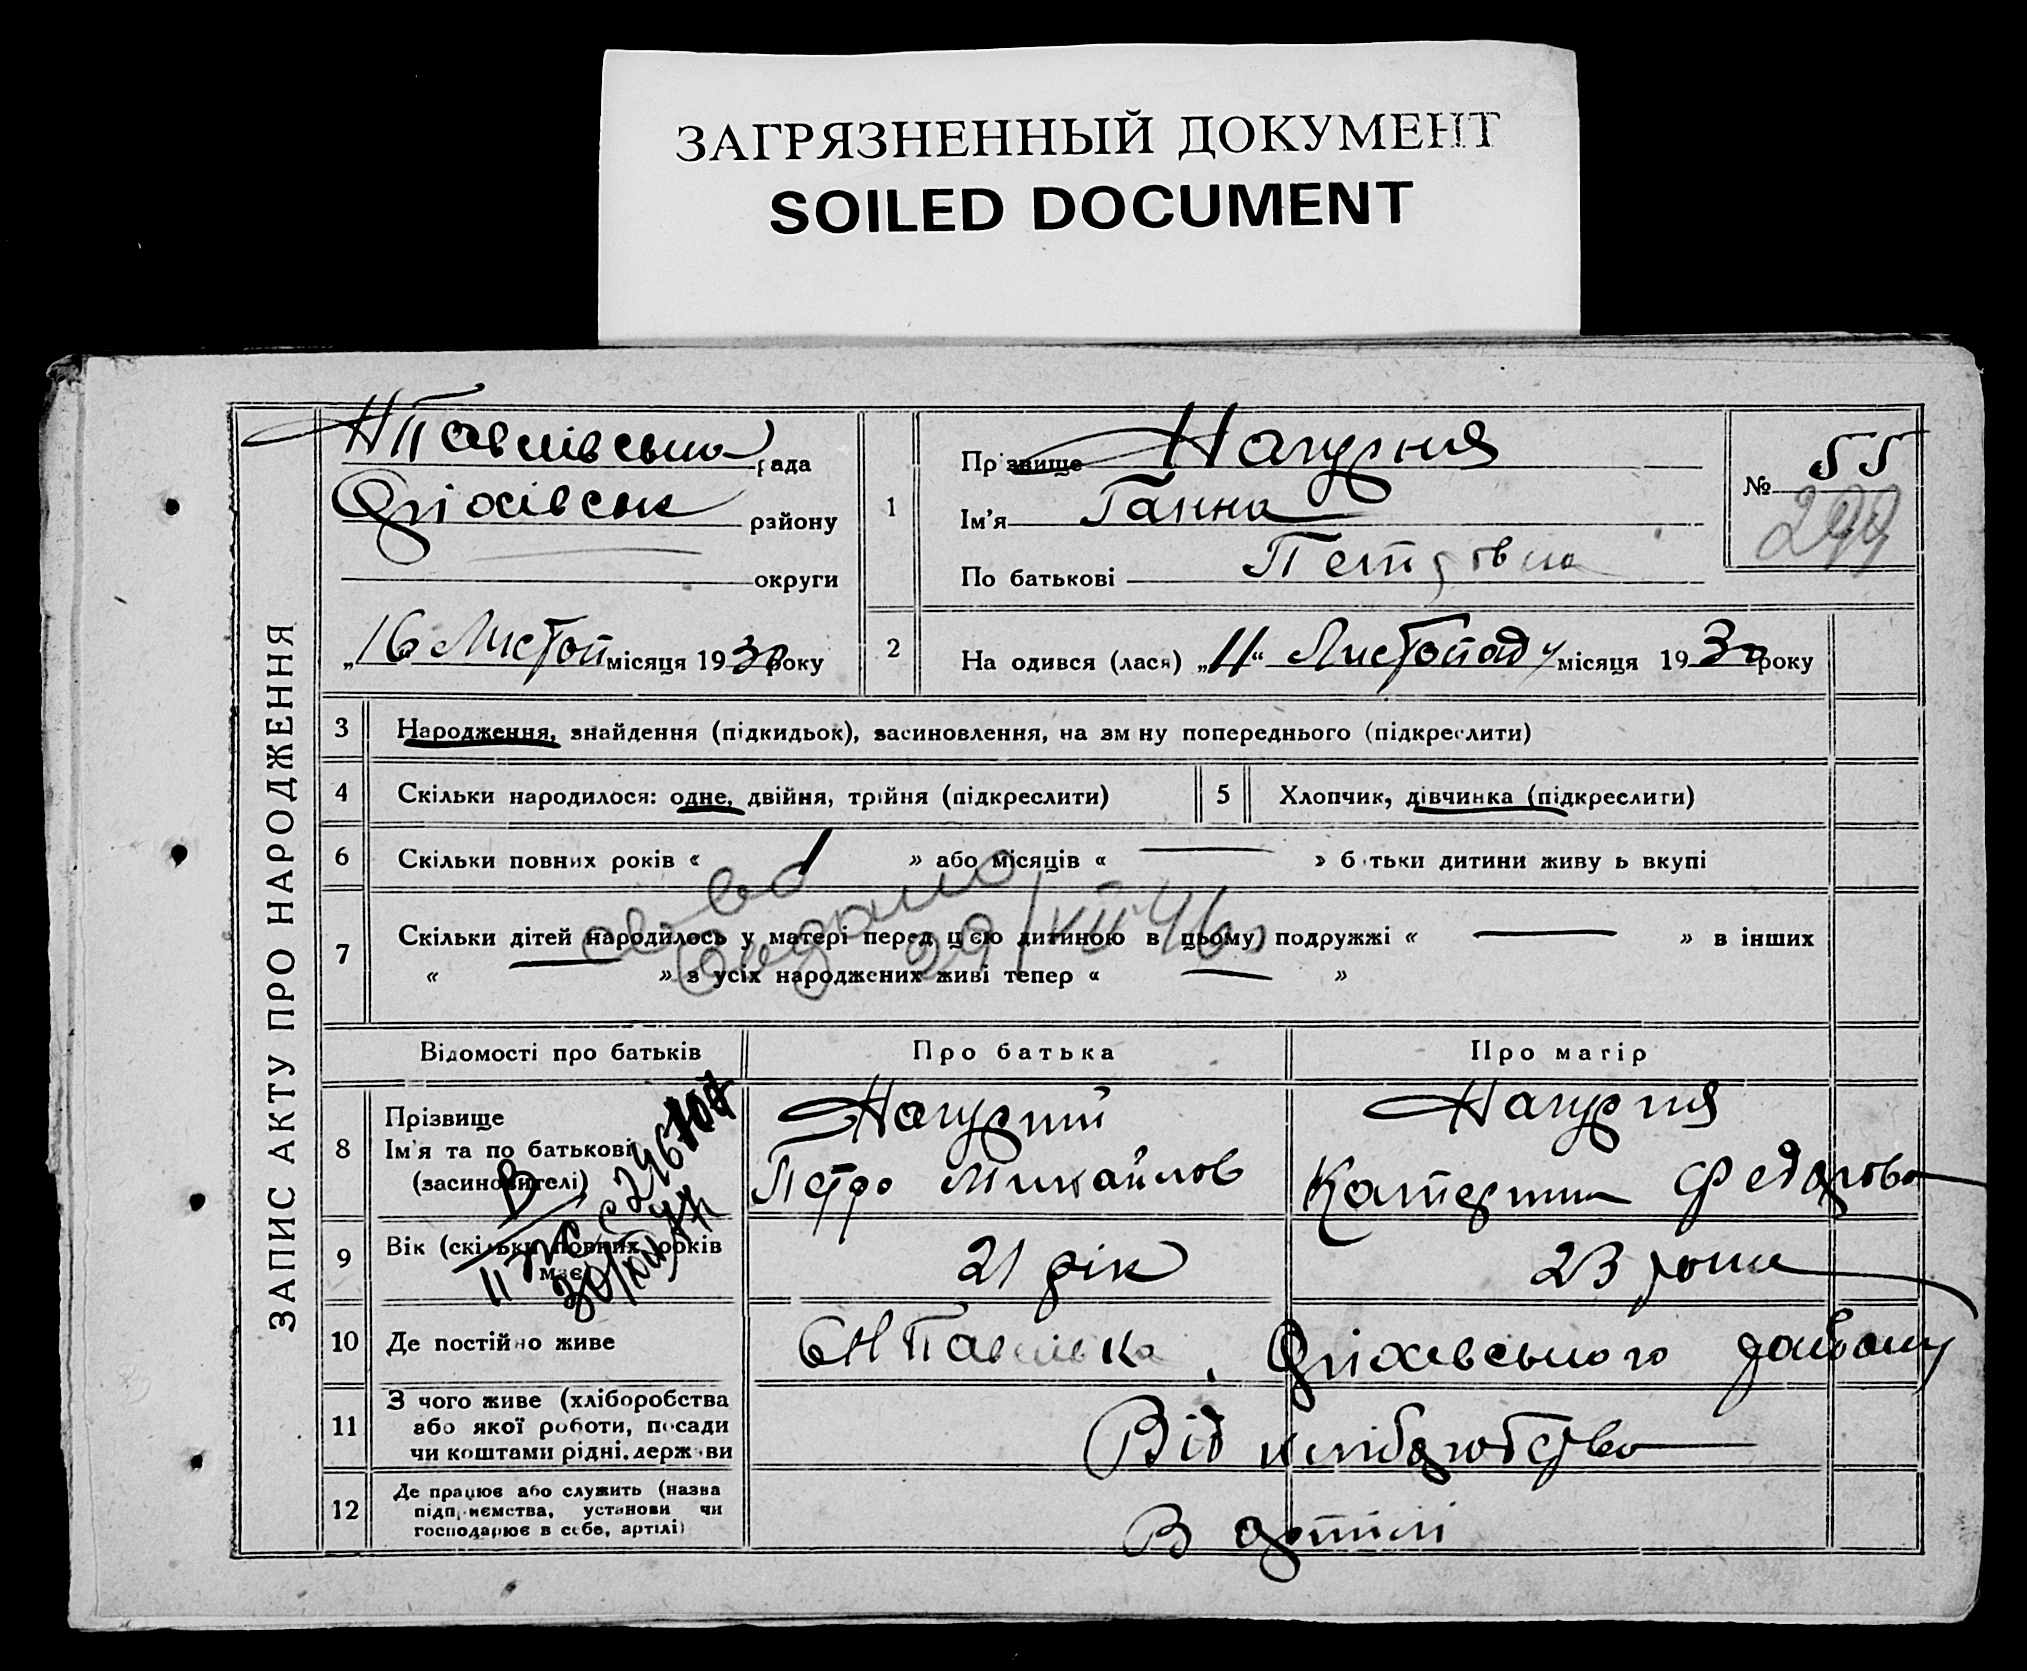 ЗАГРЯЗНЕННЫЙ ДОКУМЕНТ
SOILED DOCUMENT
ЗАПИС АКТУ ПРО НАРОДЖЕННЯ
НПавлівська рада
Оріхівськ району
округи
„16“ Листоп місяця 1930 року
1
Прізвище Нагурня
Ім'я Ганна
По батькові Петровна
№ 55
299
2
На одився (лася) „11“ Листопаду місяця 1930 року
3 Народження, знайдення (підкидьок), засиновлення, на зм ну попереднього (підкреслити)
4 Скільки народилося: одне, двійня, трійня (підкреслити)
5 Хлопчик, дівчинка (підкреслити)
6 Скільки повних років « 1 » або місяців « — » б тьки дитини живу ь вкупі
7 Скільки дітей народилось у матері перед цією дитиною в цьому подружжі « — » в інших
« — » з усіх народжених живі тепер « — »
видано 29/VII 46
Відомості про батьків
Про батька
Про матір
8 Прізвище
Ім'я та по батькові
(засиновителі)
Нагурний
Петро Михайлов
Нагурня
Катерина Федорова
9 Вік (скільки повних років
має)
21 рік
23 роки
10 Де постійно живе
с Н Павлівка, Оріхівського району
11 З чого живе (хліборобства
або якої роботи, посади
чи коштами рідні, держ ви
Від хліборобства
12 Де працює або служить (назва
підприємства, установи чи
господарює в себе, артілі)
В артілі